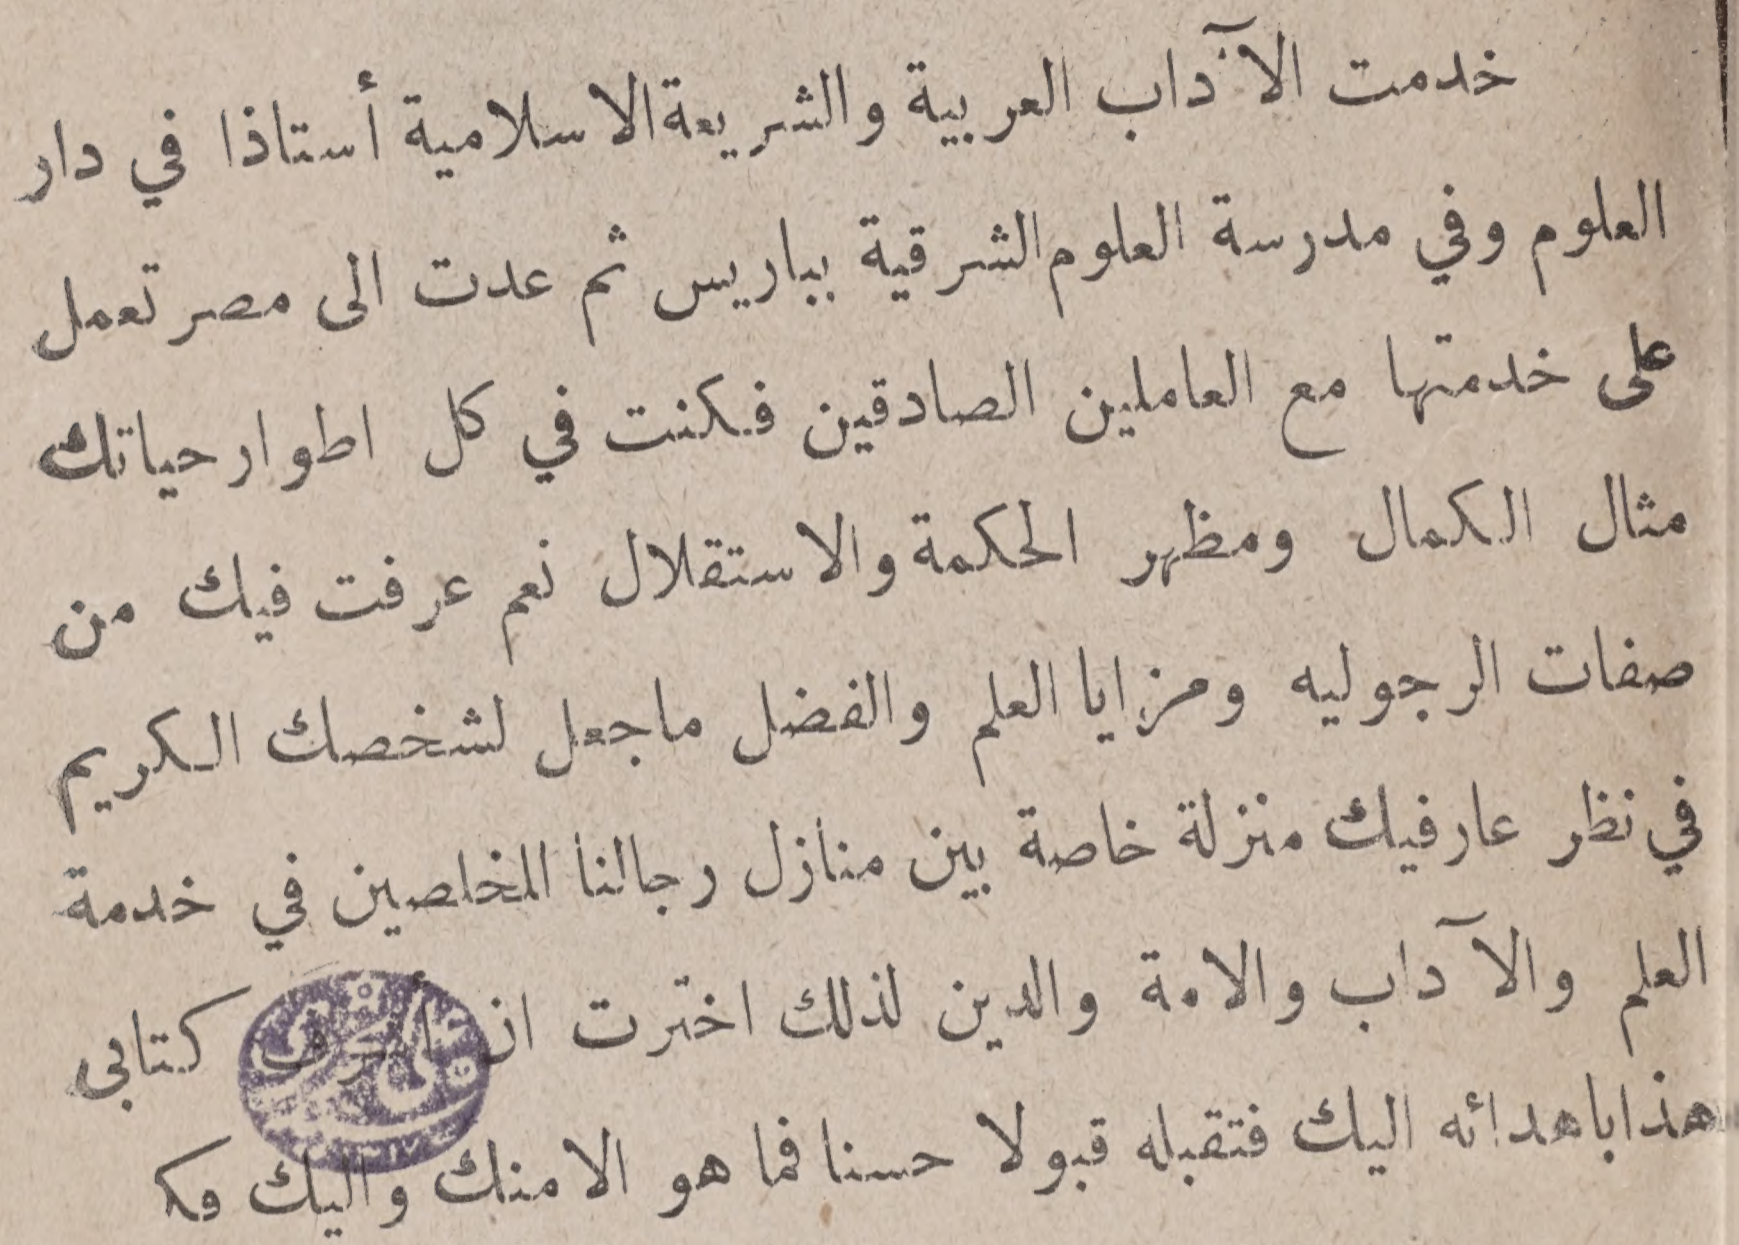 خدمت الآداب العربية والشريعة الاسلامية أستاذا في دار
العلوم وفي مدرسة العلوم الشرقية بباريس ثم عدت الى مصر تعمل
على خدمتها مع العاملين الصادقين فكنت في كل اطوار حياتك
مثال الكمال ومظهر الحكمة والاستقلال نعم عرفت فيك من
صفات الرجوليه ومزايا العلم والفضل ماجعل لشخصك الكريم
في نظر عارفيك منزلة خاصة بين منازل رجالنا المخلصين في خدمة
العلم والآداب والامة والدين لذلك اخترت ان أشرف كتابى
هذا باهدائه اليك فتقبله قبولا حسنا فما هو الا منك واليك